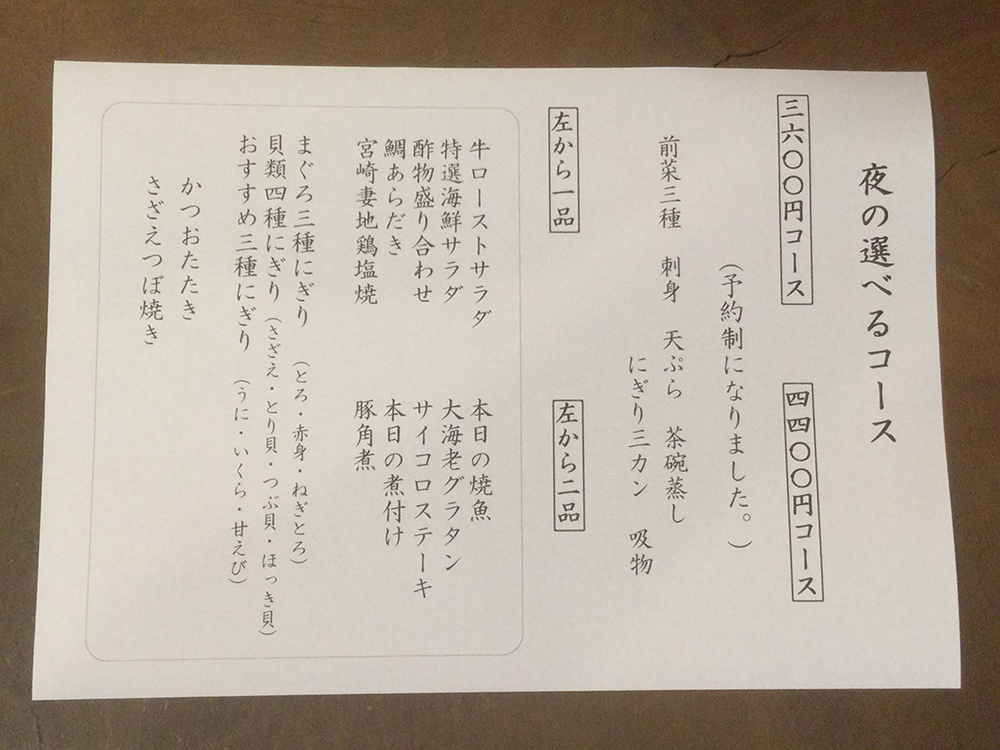 夜の選べるコース
三六〇〇円コース
四四〇〇円コース
（予約制になりました。）
前菜三種　刺身　天ぷら　茶碗蒸し
にぎり三カン　吸物
左から一品
左から二品
牛ローストサラダ
特選海鮮サラダ
酢物盛り合わせ
鯛あらだき
宮崎妻地鶏塩焼
本日の焼魚
大海老グラタン
サイコロステーキ
本日の煮付け
豚角煮
まぐろ三種にぎり（とろ・赤身・ねぎとろ）
貝類四種にぎり（さざえ・とり貝・つぶ貝・ほっき貝）
おすすめ三種にぎり（うに・いくら・甘えび）
かつおたたき
さざえつぼ焼き